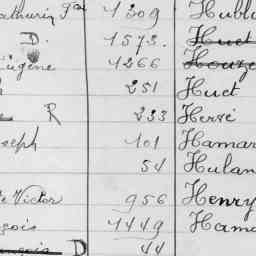 athurin Ja 1309 Hublo
D 1573. Huet
Eugène 1266 Houze
251 Huet
R 233 Hervé
seph 101 Hamar
54 Hulan
e Victor 956 Henry
çois 1449 Hamo
ançois D 44